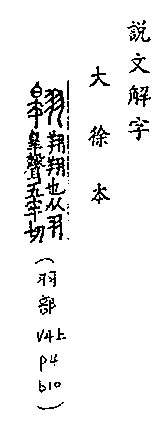 説文解字
大徐本
翺 翺翔也从羽
皐聲五牢切
(羽部 V4上 p4 b10)